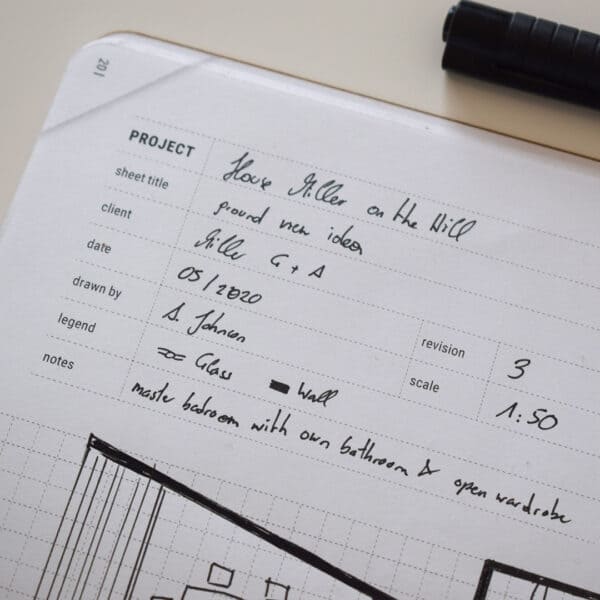 201
PROJECT House Miller on the Hill
sheet title ground view ideas
client Miller G + A
date 05/2020
drawn by A. Johnson
revision 3
legend Glass Wall
scale 1:50
notes master badroom with own bathroom & open wardrobe